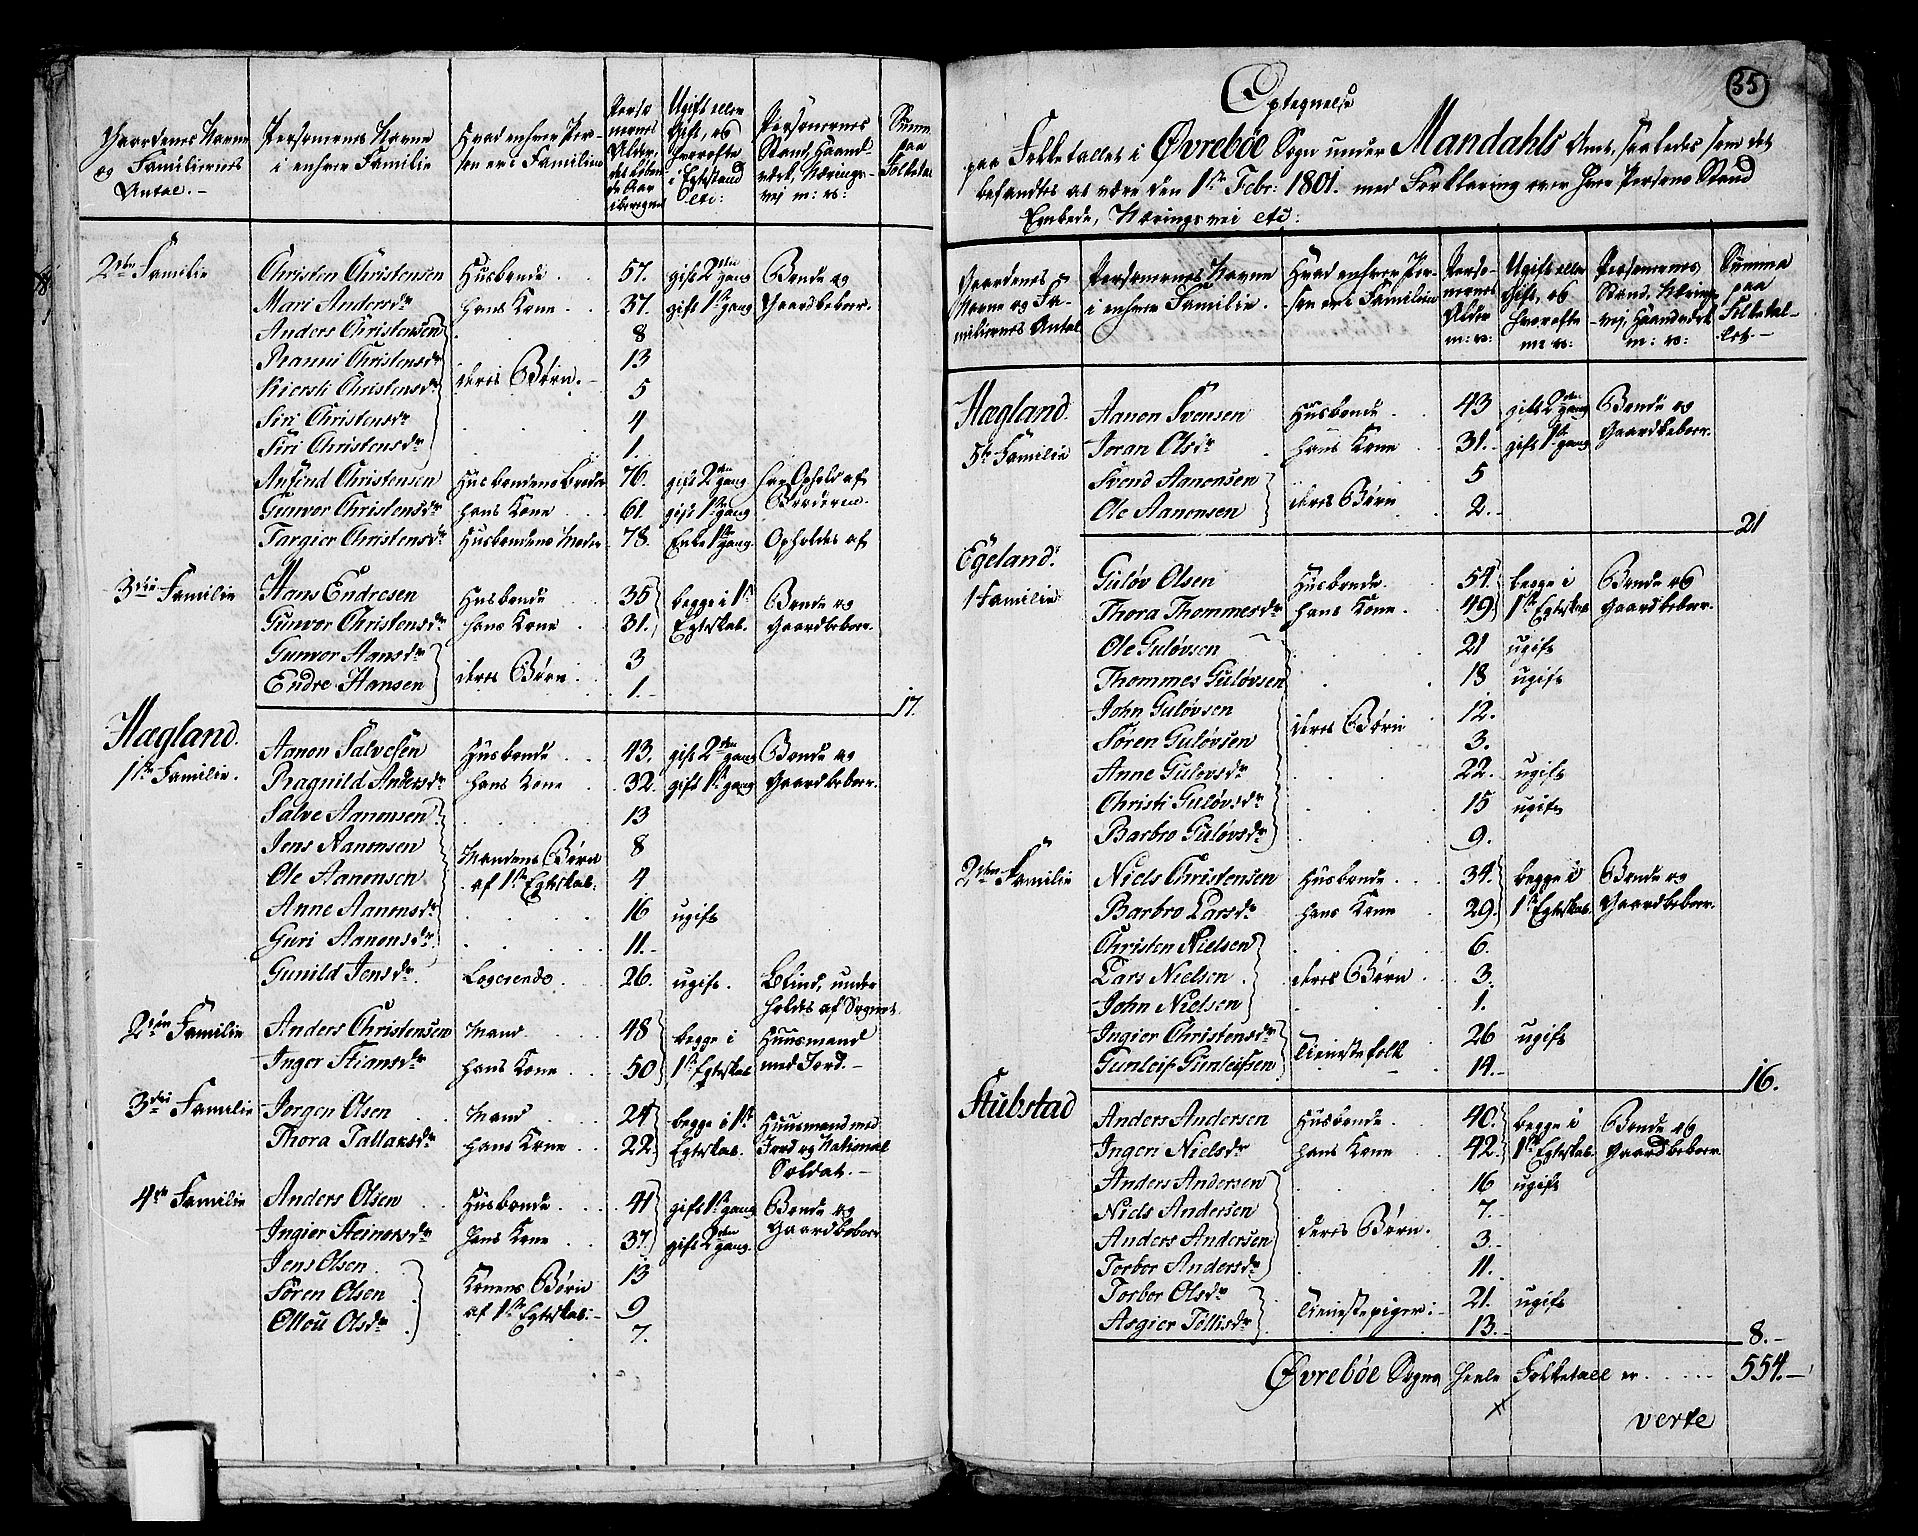 Gaardenes Navne og Familiernes Antal.
Personernes Navne i enhver Familie
Hvad enhver Person er i Familien
Personernes Alder, det løbende Aar iberegnet
Ugift eller Gift, og hvorofte i Egtestand etc:
Personernes Stand, Haandværk, Nærings-vej m: v:
Summa paa Folketal
2den Familie
Christen Christensen Husbonde 57. gift 2den gang Bonde og
Mari Andersdr hans Kone 37. gift 1ste gang Gaardbeboer.
Anders Christensen 8
Ranni Christensdr 13
Kiersti Christensdr deres Børn. 5
Siri Christensdr 4
Siri Christensdr 1.
Anfind Christensen Husbondens Broder 76. gift 2den gang har Ophold af
Gunvor Christensdr hans Kone 61. gift 1ste gang Broderen.
Targier Christensdr Husbondens Moder 78. Enke 1ste gang Opholdes af
3die Familie Hans Endresen Husbonde 35 begge i 1ste Bonde og
Gunvor Christensdr hans Kone 31. Egteskab. Gaardbeboer.
Gunvor Hansdr deres Børn 3
Endre Hansen 1.
17.
Hægland.
1ste Familie.
Aanon Salvesen Husbonde 43. gift 2den gang Bonde og
Ragnild Andersdr hans Kone 32. gift 1ste gang Gaardbeboer.
Salve Aanonsen 13
Jens Aanonsen Mandens Børn 8
Ole Aanonsen af 1ste Egteskab: 4
Anne Aanonsdr 16 ugift
Guri Aanonsdr 11.
Gunild Jensdr Logerende 26. ugift. Blind, under
holdes af Sognet.
2den Familie Anders Christensen Mand 48 begge i Huusmand
Inger Stiansdr hans Kone 50 1ste Egteskab med Jord.
3die Familie Jørgen Olsen Mand 24 begge i 1ste Huusmand med
Thora Tallaksdr hans Kone 22. Egteskab. Jord og National
Soldat.
4de Familie Anders Olsen Husbonde 41 gift 1ste gang Bonde og
Ingier Steinersdr hans Kone 37. gift 2den gang. Gaardbeboer
Jens Olsen 13
Søren Olsen Konens Børn 9
Ellou Olsdr af 1ste Egteskab: 7.
35
Optegnelse
paa Folketallet i Øvrebøe Sogn under Mandahls Amt, saaledes som det
befandtes at være den 1ste Febr: 1801. med Forklaring over hver Persons Stand
Embede, Næringsvei etc:
Gaardenes Navne og Familiernes Antal
Personernes Navne i enhver Familie.
Hvad enhver Person er i Familien
Personernes Alder m: v:
Ugift eller Gift, og hvorofte m: v:
Personernes Stand, Nærings-vej, Haandværk m: v:
Summa paa Folketallet.
Hægland. Aanon Svensen Husbonde 43 gift 2den gang Bonde og
5te Familie Joran Olsdr hans Kone 31. gift 1ste gang Gaardbeboer.
Svend Aanonsen deres Børn 5
Ole Aanonsen 2.
21
Egeland.
1 Familie: Guløv Olsen Husbonde 54 begge i Bonde og
Thora Thommesdr hans Kone 49 1ste Egteskab Gaardbeboer.
Ole Guløvsen 21 ugift
Thommes Guløvsen 18 ugift
John Guløvsen deres Børn 12.
Søren Guløvsen 3.
Anne Guløvsdr 22. ugift
Christi Guløvsdr 15 ugift
Barbro Guløvsdr 9.
2den Familie Niels Christensen Husbonde 34. begge i Bonde og
Barbro Larsdr hans Kone 29. 1ste Egteskab. Gaardbeboer.
Christen Nielsen 6.
Lars Nielsen deres Børn 3.
John Nielsen 1.
Ingier Christensdr Tienestefolk 26 ugift
Gunleif Gunleifsen 14.
16.
Stubstad Anders Andersen Husbonde 40. begge i Bonde og
Ingeri Nielsdr hans Kone 42. 1ste Egteskab. Gaardbeboer.
Anders Andersen 16 ugift
Niels Andersen 7.
Anders Andersen deres Børn. 3.
Torbor Andersdr 11.
Torbor Olsdr Tienestepiger: 21. ugift
Asgier Tellisdr 13.
8.
Øvrebøe Sogns heele Folketall er 554.
verte